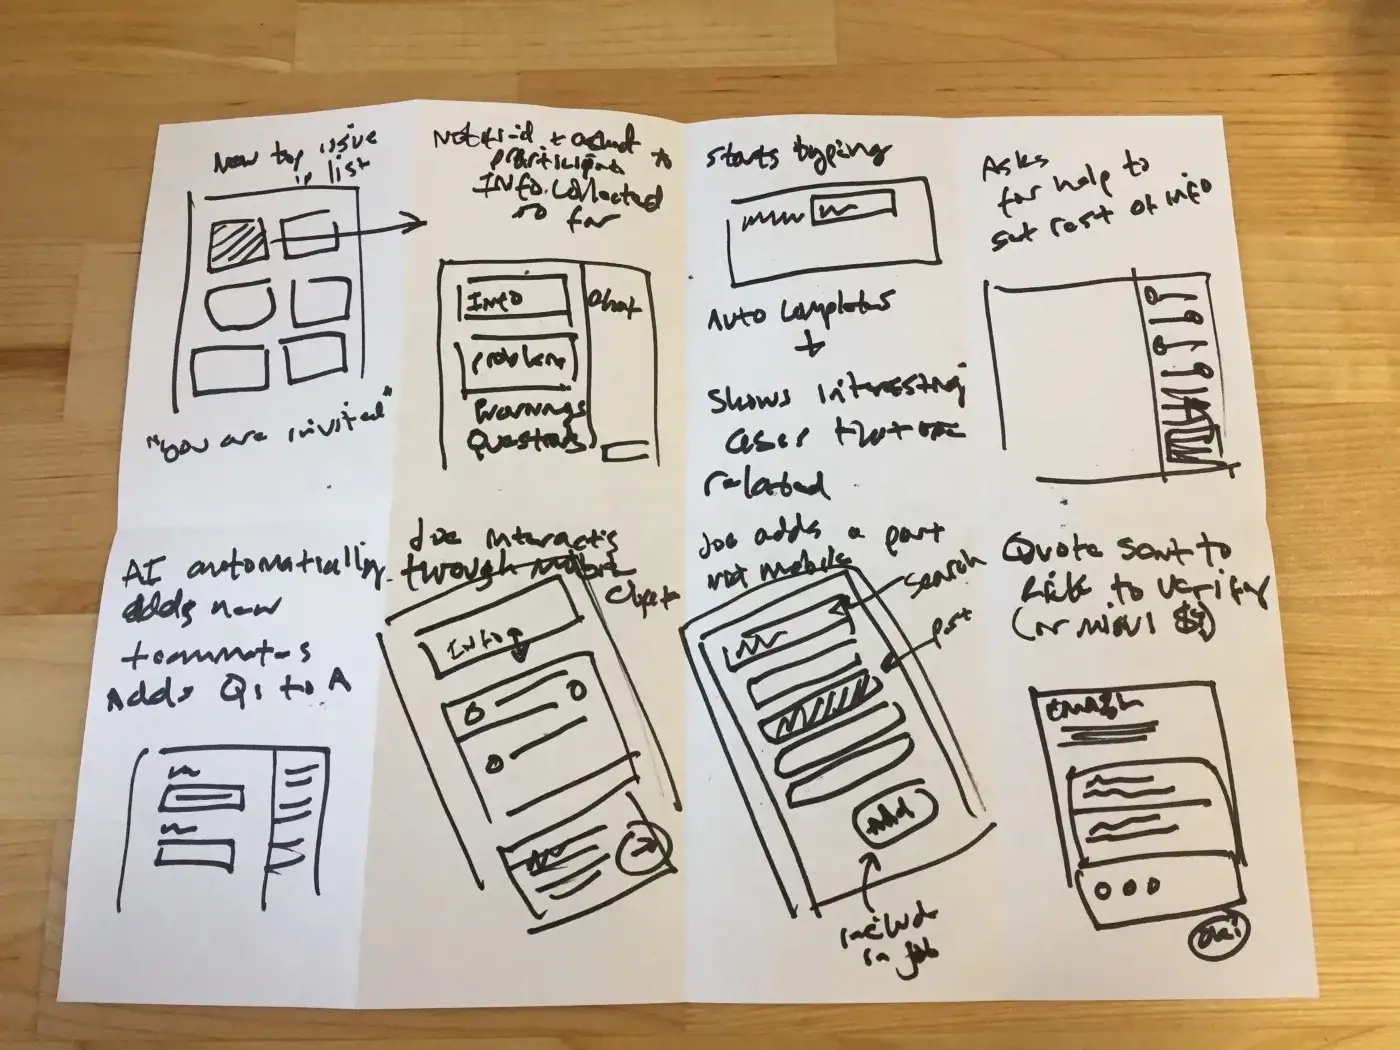 New top issue
in list
"You are invited"
Notified + asked
participant to
Info collected
so far
Info
Chat
problem
Warnings
Questions
Starts typing
Auto completes
+
Shows interesting
cases that are
related
Asks
for help to
get rest of info
AI automatically
adds new
teammates
Adds Qs to A
Joe interacts
through mobile
Chat
Info
Joe adds a part
via mobile
search
part
Add
include
in job
Quote sent to
to verify
(or $$)